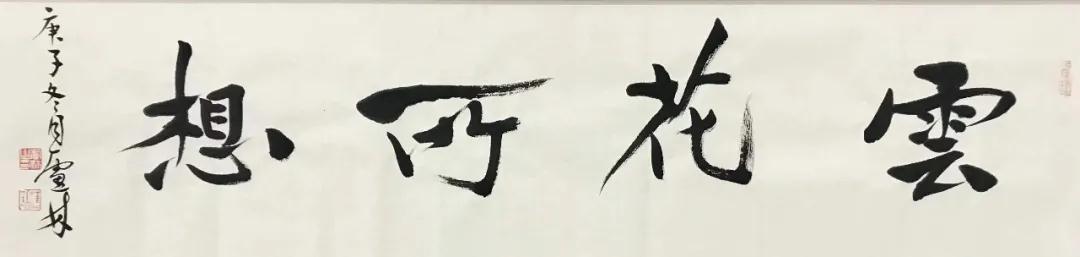 雲花所想
庚子冬月盧林